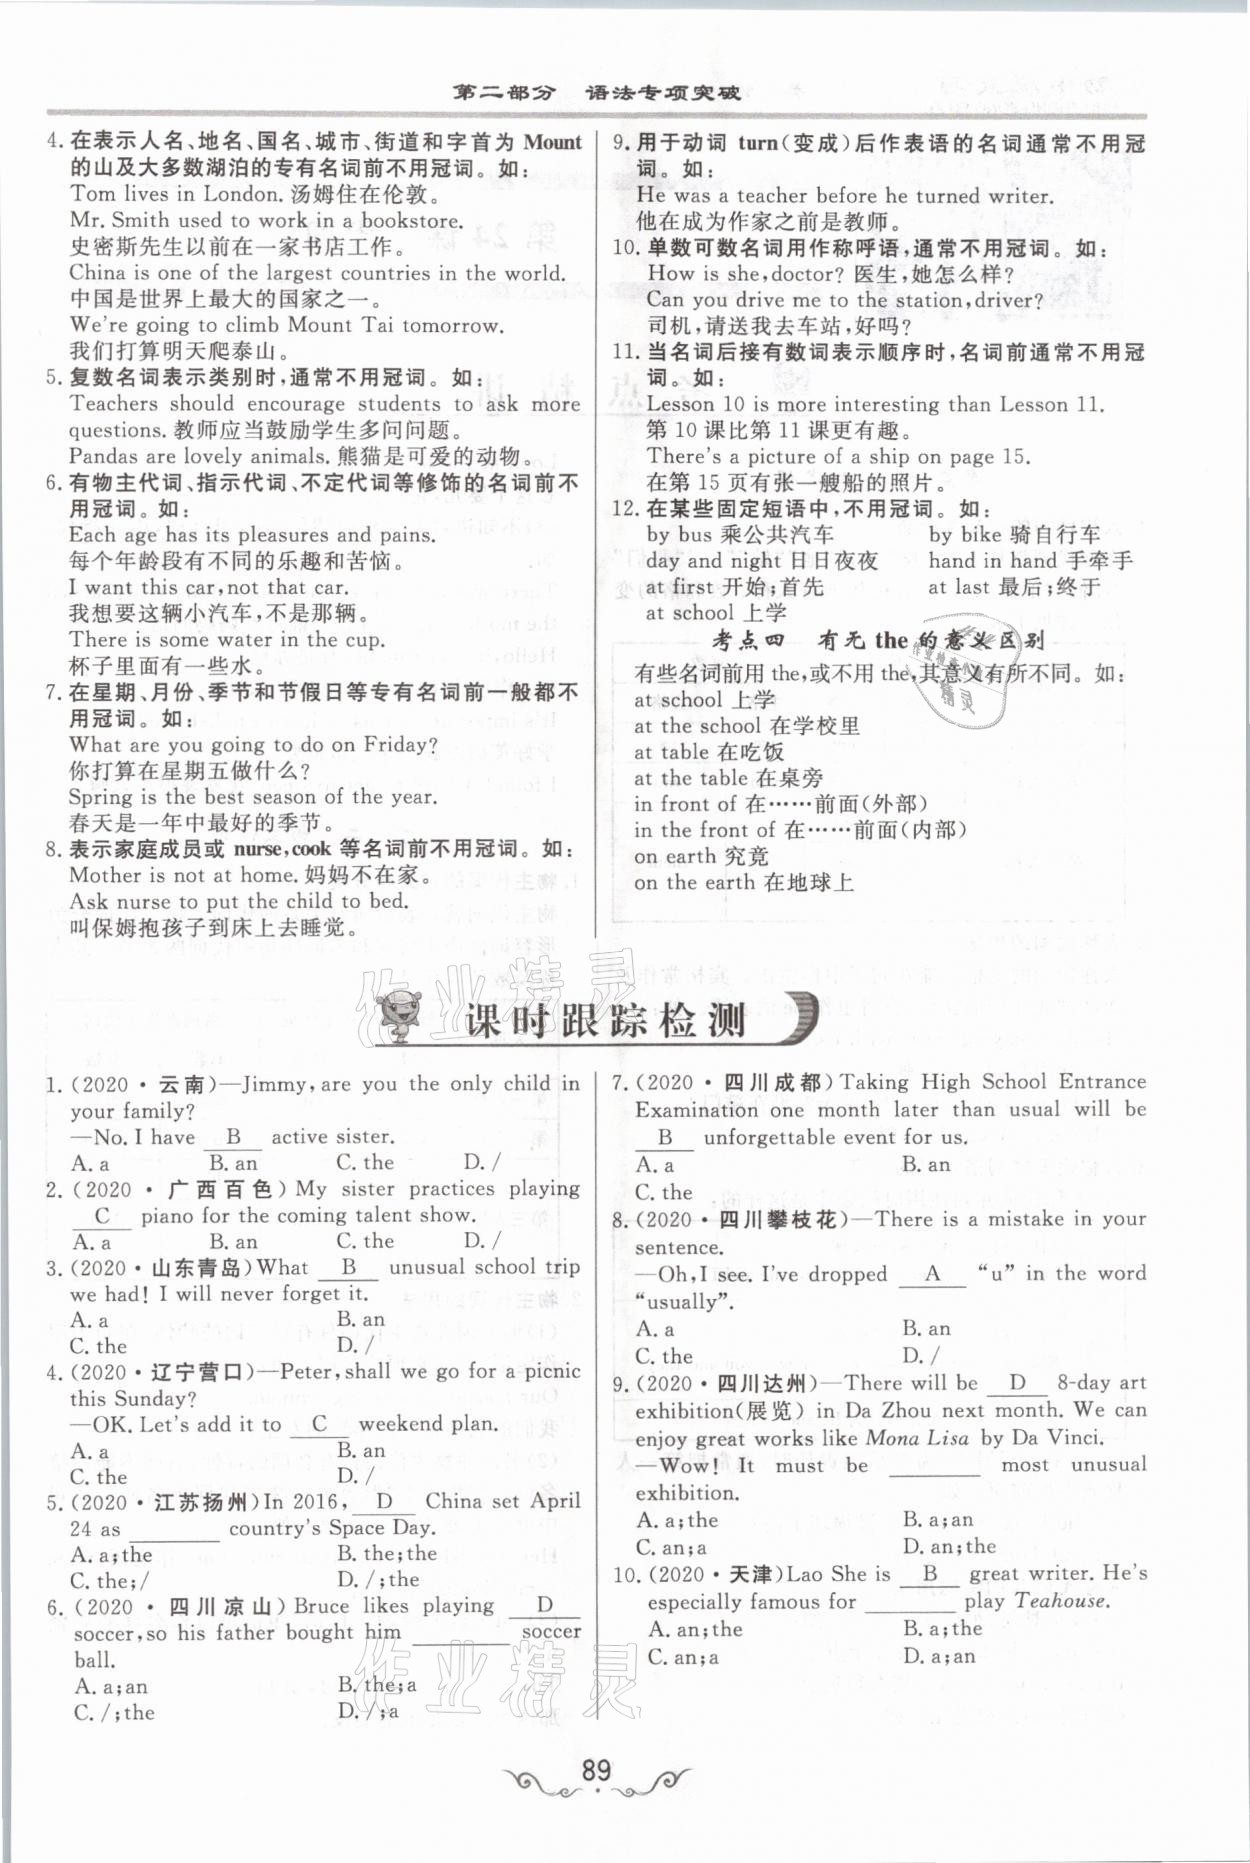 第二部分 语法专项突破
4. 在表示人名、地名、国名、城市、街道和字首为 Mount
的山及大多数湖泊的专有名词前不用冠词。如：
Tom lives in London. 汤姆住在伦敦。
Mr. Smith used to work in a bookstore.
史密斯先生以前在一家书店工作。
China is one of the largest countries in the world.
中国是世界上最大的国家之一。
We're going to climb Mount Tai tomorrow.
我们打算明天爬泰山。
5. 复数名词表示类别时,通常不用冠词。如：
Teachers should encourage students to ask more
questions. 教师应当鼓励学生多问问题。
Pandas are lovely animals. 熊猫是可爱的动物。
6. 有物主代词、指示代词、不定代词等修饰的名词前不
用冠词。如：
Each age has its pleasures and pains.
每个年龄段有不同的乐趣和苦恼。
I want this car,not that car.
我想要这辆小汽车,不是那辆。
There is some water in the cup.
杯子里面有一些水。
7. 在星期、月份、季节和节假日等专有名词前一般都不
用冠词。如：
What are you going to do on Friday?
你打算在星期五做什么?
Spring is the best season of the year.
春天是一年中最好的季节。
8. 表示家庭成员或 nurse,cook 等名词前不用冠词。如：
Mother is not at home. 妈妈不在家。
Ask nurse to put the child to bed.
叫保姆抱孩子到床上去睡觉。
9. 用于动词 turn(变成)后作表语的名词通常不用冠
词。如：
He was a teacher before he turned writer.
他在成为作家之前是教师。
10. 单数可数名词用作称呼语,通常不用冠词。如：
How is she,doctor? 医生,她怎么样?
Can you drive me to the station,driver?
司机,请送我去车站,好吗?
11. 当名词后接有数词表示顺序时,名词前通常不用冠
词。如：
Lesson 10 is more interesting than Lesson 11.
第 10 课比第 11 课更有趣。
There's a picture of a ship on page 15.
在第 15 页有张一艘船的照片。
12. 在某些固定短语中,不用冠词。如：
by bus 乘公共汽车 by bike 骑自行车
day and night 日日夜夜 hand in hand 手牵手
at first 开始;首先 at last 最后;终于
at school 上学
考点四 有无 the 的意义区别
有些名词前用 the,或不用 the,其意义有所不同。如：
at school 上学
at the school 在学校里
at table 在吃饭
at the table 在桌旁
in front of 在……前面(外部)
in the front of 在……前面(内部)
on earth 究竟
on the earth 在地球上
课时跟踪检测
1. (2020·云南)—Jimmy,are you the only child in
your family?
—No. I have B active sister.
A. a B. an C. the D. /
2. (2020·广西百色) My sister practices playing
C piano for the coming talent show.
A. a B. an C. the D. /
3. (2020·山东青岛)What B unusual school trip
we had! I will never forget it.
A. a B. an
C. the D. /
4. (2020·辽宁营口)—Peter,shall we go for a picnic
this Sunday?
—OK. Let's add it to C weekend plan.
A. a B. an
C. the D. /
5. (2020·江苏扬州)In 2016, D China set April
24 as ________ country's Space Day.
A. a;the B. the;the
C. the;/ D. /;the
6. (2020·四川凉山) Bruce likes playing D
soccer,so his father bought him ________ soccer
ball.
A. a;an B. the;a
C. /;the D. /;a
7. (2020·四川成都)Taking High School Entrance
Examination one month later than usual will be
B unforgettable event for us.
A. a B. an
C. the
8. (2020·四川攀枝花)—There is a mistake in your
sentence.
—Oh,I see. I've dropped A “u” in the word
“usually”.
A. a B. an
C. the D. /
9. (2020·四川达州)—There will be D 8-day art
exhibition(展览) in Da Zhou next month. We can
enjoy great works like Mona Lisa by Da Vinci.
—Wow! It must be ________ most unusual
exhibition.
A. a;the B. a;an
C. an;a D. an;the
10. (2020·天津)Lao She is B great writer. He's
especially famous for ________ play Teahouse.
A. an;the B. a;the
C. an;a D. a;an
作业精灵
作业精灵
89